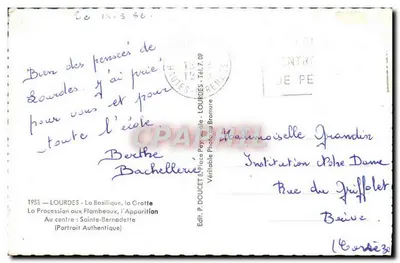 Le 14.5.56.
Bien des pensées de
Lourdes. J'ai prié
pour vous et pour
toute l'école
Berthe
Bachellerie
1955 — LOURDES - La Basilique, la Grotte
La Procession aux Flambeaux, l'Apparition
Au centre : Sainte-Bernadette
(Portrait Authentique)
Edit. P. DOUCET, Place Peyramale - LOURDES - Tél. 7.09
Véritable Photo au Bromure
HAUTES PYRENEES
DE PE
Mademoiselle Grandin
Institution Notre Dame
Rue du Griffolet
Brive
(Corrèze)